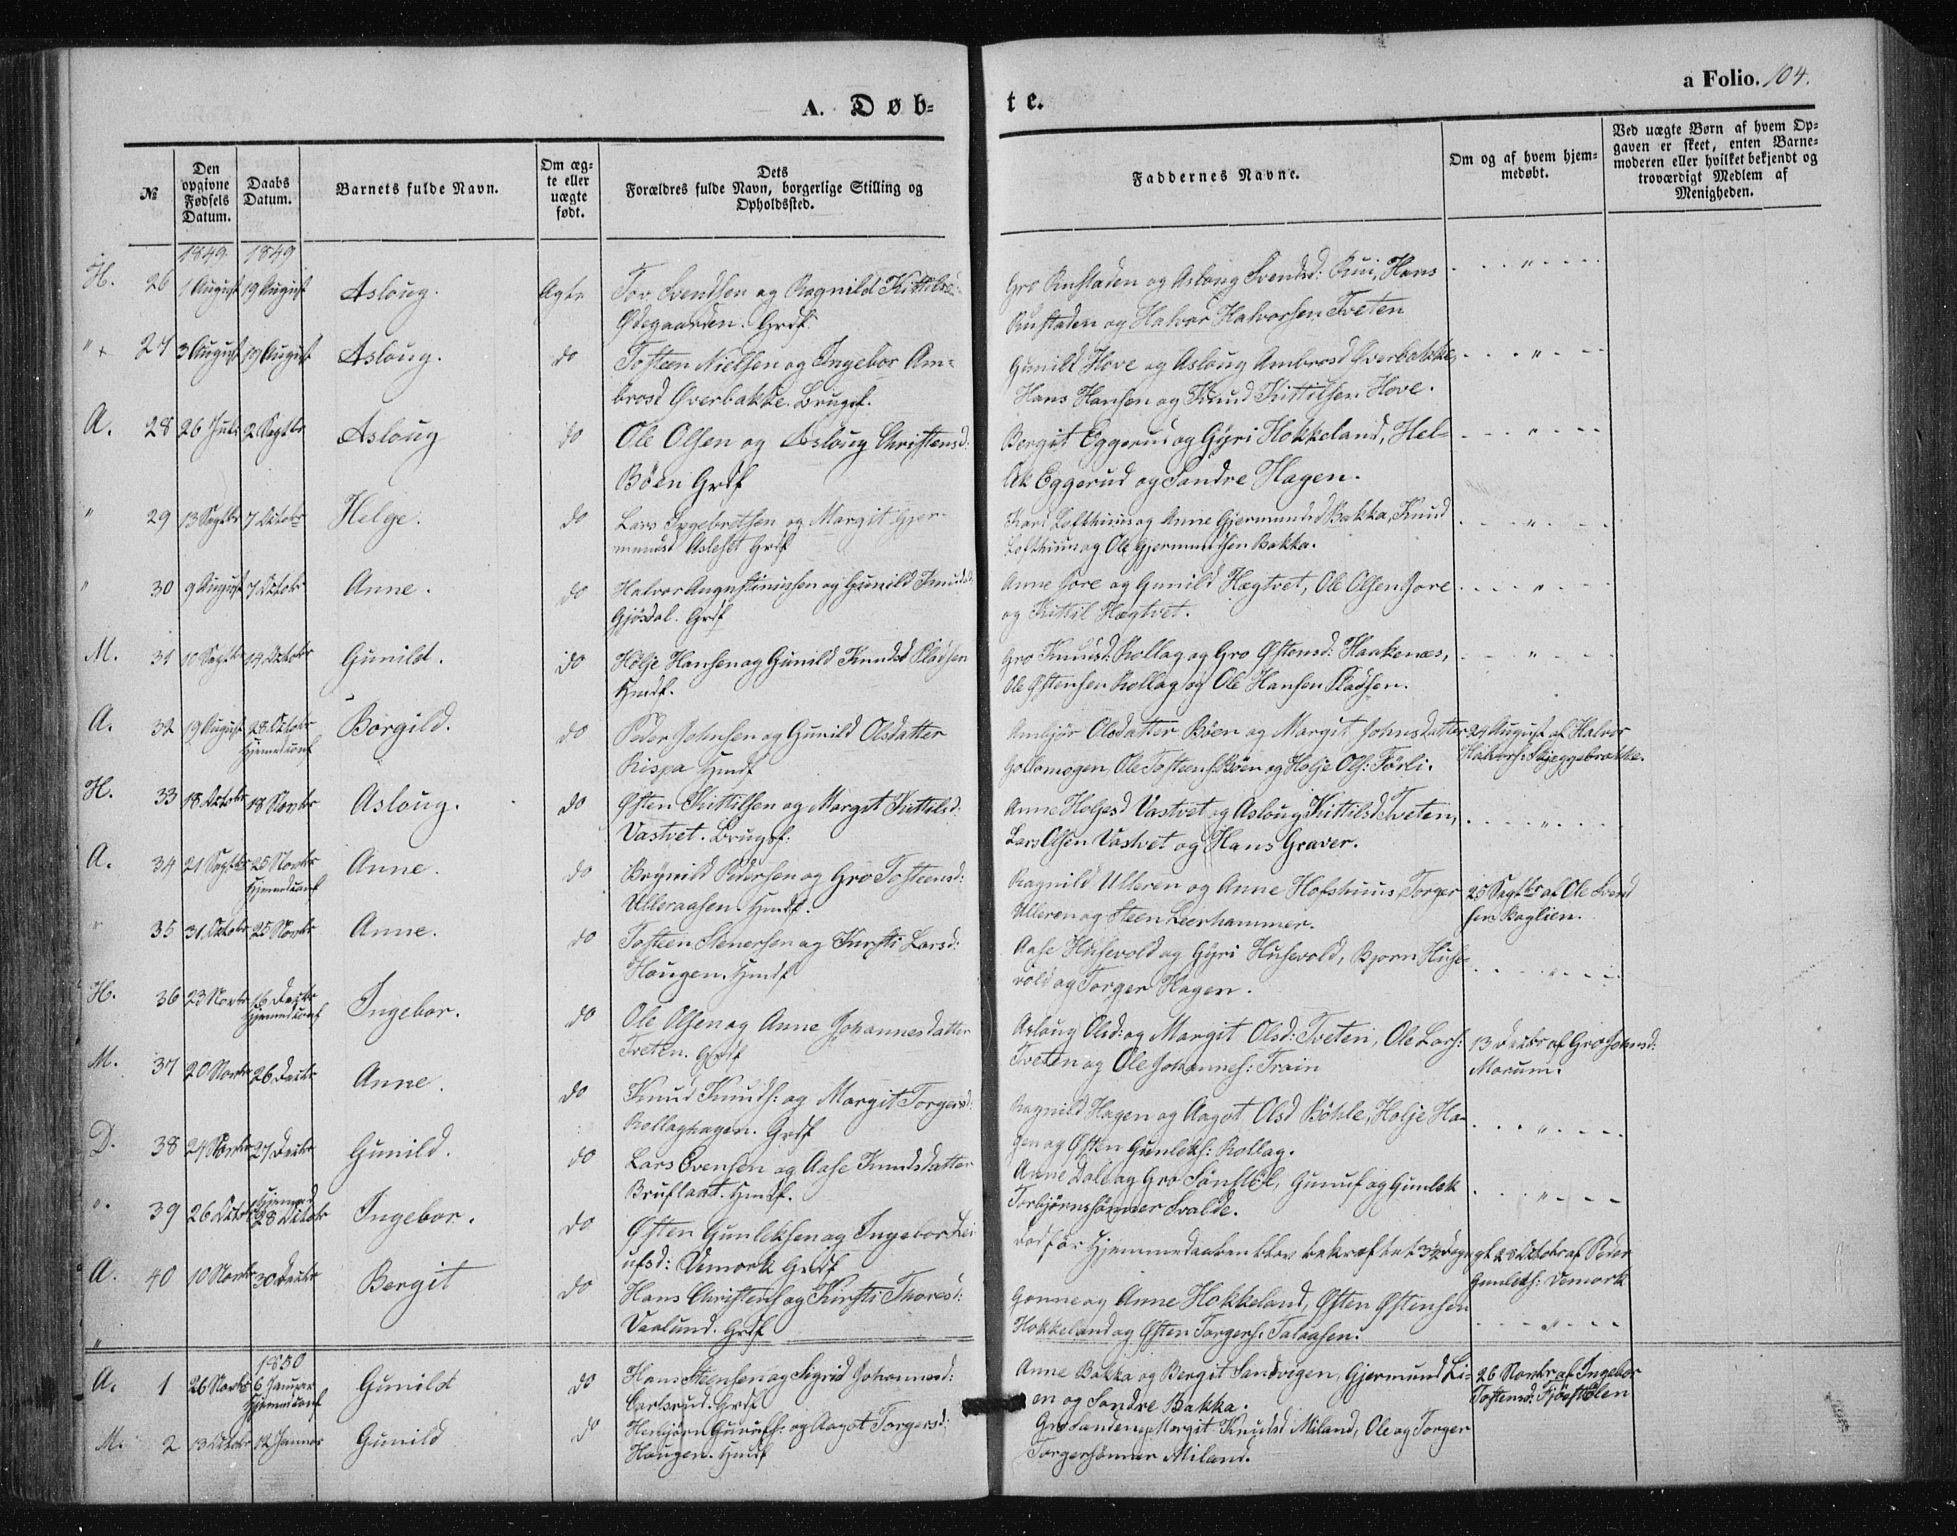 A. Døb-
te.
a Folio. 104.
№
Den opgivne Fødsels Datum.
Daabs Datum.
Barnets fulde Navn.
Om æg-te eller uægte født.
Dets Forældres fulde Navn, borgerlige Stilling og Opholdssted.
Faddernes Navne.
Om og af hvem hjem-medøbt.
Ved uægte Børn af hvem Op-gaven er skeet, enten Barne-moderen eller hvilket bekjendt og troværdigt Medlem af Menigheden.
1849 1849
H. 26 1 August 19 August Asloug. Ægte Tov Svendsen og Ragnild Kittilsd:
Ødegaarden. Grdf.
Gro Rustaden og Asloug Svendsd: Rui, Hans
Rustaden og Halvor Halvorsen Tveten
" 27 3 August 19 August Asloug. do Tosteen Nielsen og Ingebor Am-
brosd Øverbakke. Brugsf.
Gunild Hove og Asloug Ambrosd Øverbakke,
Hans Hansen og Knud Kittilsen Hove.
A. 28 26 Juli 2 Septbr Asloug do Ole Olsen og Asloug Christensd:
Böen Grdf
Bergit Eggerud og Gyri Hokkeland, Hel-
Eggerud og Sondre Hagen.
" 29 13 Septbr 7 Octobr Helge. do Lars Ingebretsen og Margit Gjer-
mundsd Aslefet Grdf
Kari Lofthuus og Anne Gjermundsd Bakka, Knud
Lofthuus og Ole Gjermundsen Bakka.
" 30 9 August 7 Octobr Anne. do Halvor Augustinusen og Gunild Knudsd:
Gjösdal. Grdf
Anne Gore og Gunild Hægtvet, Ole Olsen Gore
og Kittil Hægtvet.
M. 31 10 Septbr 14 Octobr Gunild. do Holje Hansen og Gunild Knudsd Pladsen
Hmdf.
Gro Knudsd: Rollag og Gro Østensd: Haakenæs,
Ole Østensen Rollag og Ole Hansen Pladsen.
A. 32 19 August 28 Octobr
Hjemmed: conf Borgild. do Peder Johnsen og Gunild Olsdatter
Rispa Hmdf
Ambjør Olsdatter Böen og Margit Johnsdatter
Gollomogen, Ole Tosteens: Böen og Holje Ols: Förli.
24 August af Halvor
Halvors: Skjeggebrække.
H. 33 18 Octobr 18 Novbr Asloug. do Østen Kittilsen og Margit Kittilsd:
Vastvet. Brugsf.
Anne Holjesd Vastvet og Asloug Kittilsd Tveten,
Lars Olsen Vastvet og Hans Graver.
A. 34 21 Septbr 25 Novbr
Hjemmed: conf Anne. do Brynild Pedersen og Gro Tosteensd:
Ulleraasen. Hmdf.
Ragnild Ulleren og Anne Hofshuus, Torger
Ulleren og Steen Leerhammer.
25 Septbr af Ole Svend
sen Baglien.
" 35 31 Octobr 25 Novbr Anne. do Tosteen Stenersen og Kirsti Larsd:
Haugen. Hmdf
Aase Husevold og Gyri Husevold, Bjorn Huse-
vold og Torger Hagen.
H. 36 23 Novbr 16 Decbr
Hjemmed conf Ingebor. do Ole Olsen og Anne Johannesdatter
Tveten. Grdf
Asloug Olsd: og Margit Olsd: Tveten, Ole Lars:
Tveten og Ole Johannes: Train
13 Decbr af Gro Johnsd:
Marum.
M. 37 20 Novbr 26 Decbr Anne. do Knud Knuds: og Margit Torgersd:
Rollaghagen. Grdf
Ragnild Hagen og Aagot Olsd Böhle, Holje Ha-
gen og Østen Gunleks: Rollag.
D. 38 24 Novbr 27 Decbr Gunild. do Lars Evensen og Aase Knudsdatter
Bruflaat. Hmdf.
Anne Dale og Gro Sönstöl, Gunuf og Gunlek
Torbjörnssönner Svalde.
". 39 26 Octobr Hjemmed
28 Octobr Ingebor. do Østen Gunleksen og Ingebor Lei
ufsd: Vemork Grdf
död för Hjemmedaaben blev bekræftet 3½ Døgn gl
28 Octobr af Peder
Gunleks: Vemork
A. 40 10 Novbr 30 Decbr Bergit do Hans Christens og Kirsti Thoresd:
Vaalund. Grdf
Gonne og Anne Hokkeland, Østen Østensen
Hokkeland og Østen Torgers: Talaasen.
1850
A. 1 26 Novbr 6 Januar
Hjemmed: conf Gunild do Hans Steensen og Sigrid Johannesd:
Carlsrud. Grdf
Anne Bakka og Bergit Sandvigen, Gjermund Li-
en og Sondre Bakka.
26 Novbr af Ingebor
Tostensd: Fjöestölen
M. 2 13 Octobr 12 Januar Gunild do Herbjörn Gunufs: og Aagot Torgersd:
Haugen. Hmdf
Gro Sanden og Margit Knudsd Miland, Ole og Torger
Torgersönner Miland.